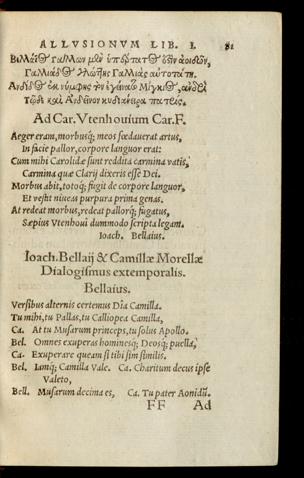 ALLVSIONVM LIB. I. 81
Ad Car. Vtenhouium Car. F.
Aeger eram, morbusq; meos foedauerat artus,
In facie pallor, corpore languor erat:
Cum mihi Carolidæ sunt reddita carmina vatis,
Carmina quæ Clarij dixeris esse Dei.
Morbus abit, totoq; fugit de corpore languor,
Et vestit niueas purpura prima genas.
At redeat morbus, redeat pallorq; fugatus,
Sæpius Vtenhoui dummodo scripta legam.
Ioach. Bellaius.
Ioach. Bellaij & Camillæ Morellæ
Dialogismus extemporalis.
Bellaius.
Versibus alternis certemus Dia Camilla.
Tu mihi, tu Pallas, tu Calliopea Camilla,
Ca. At tu Musarum princeps, tu solus Apollo.
Bel. Omnes exuperas hominesq; Deosq; puella,
Ca. Exuperare queam si tibi sim similis.
Bel. Iamq; Camilla Vale. Ca. Charitum decus ipse
Valeto,
Bell. Musarum decima es, Ca. Tu pater Aonidũ.
FF Ad